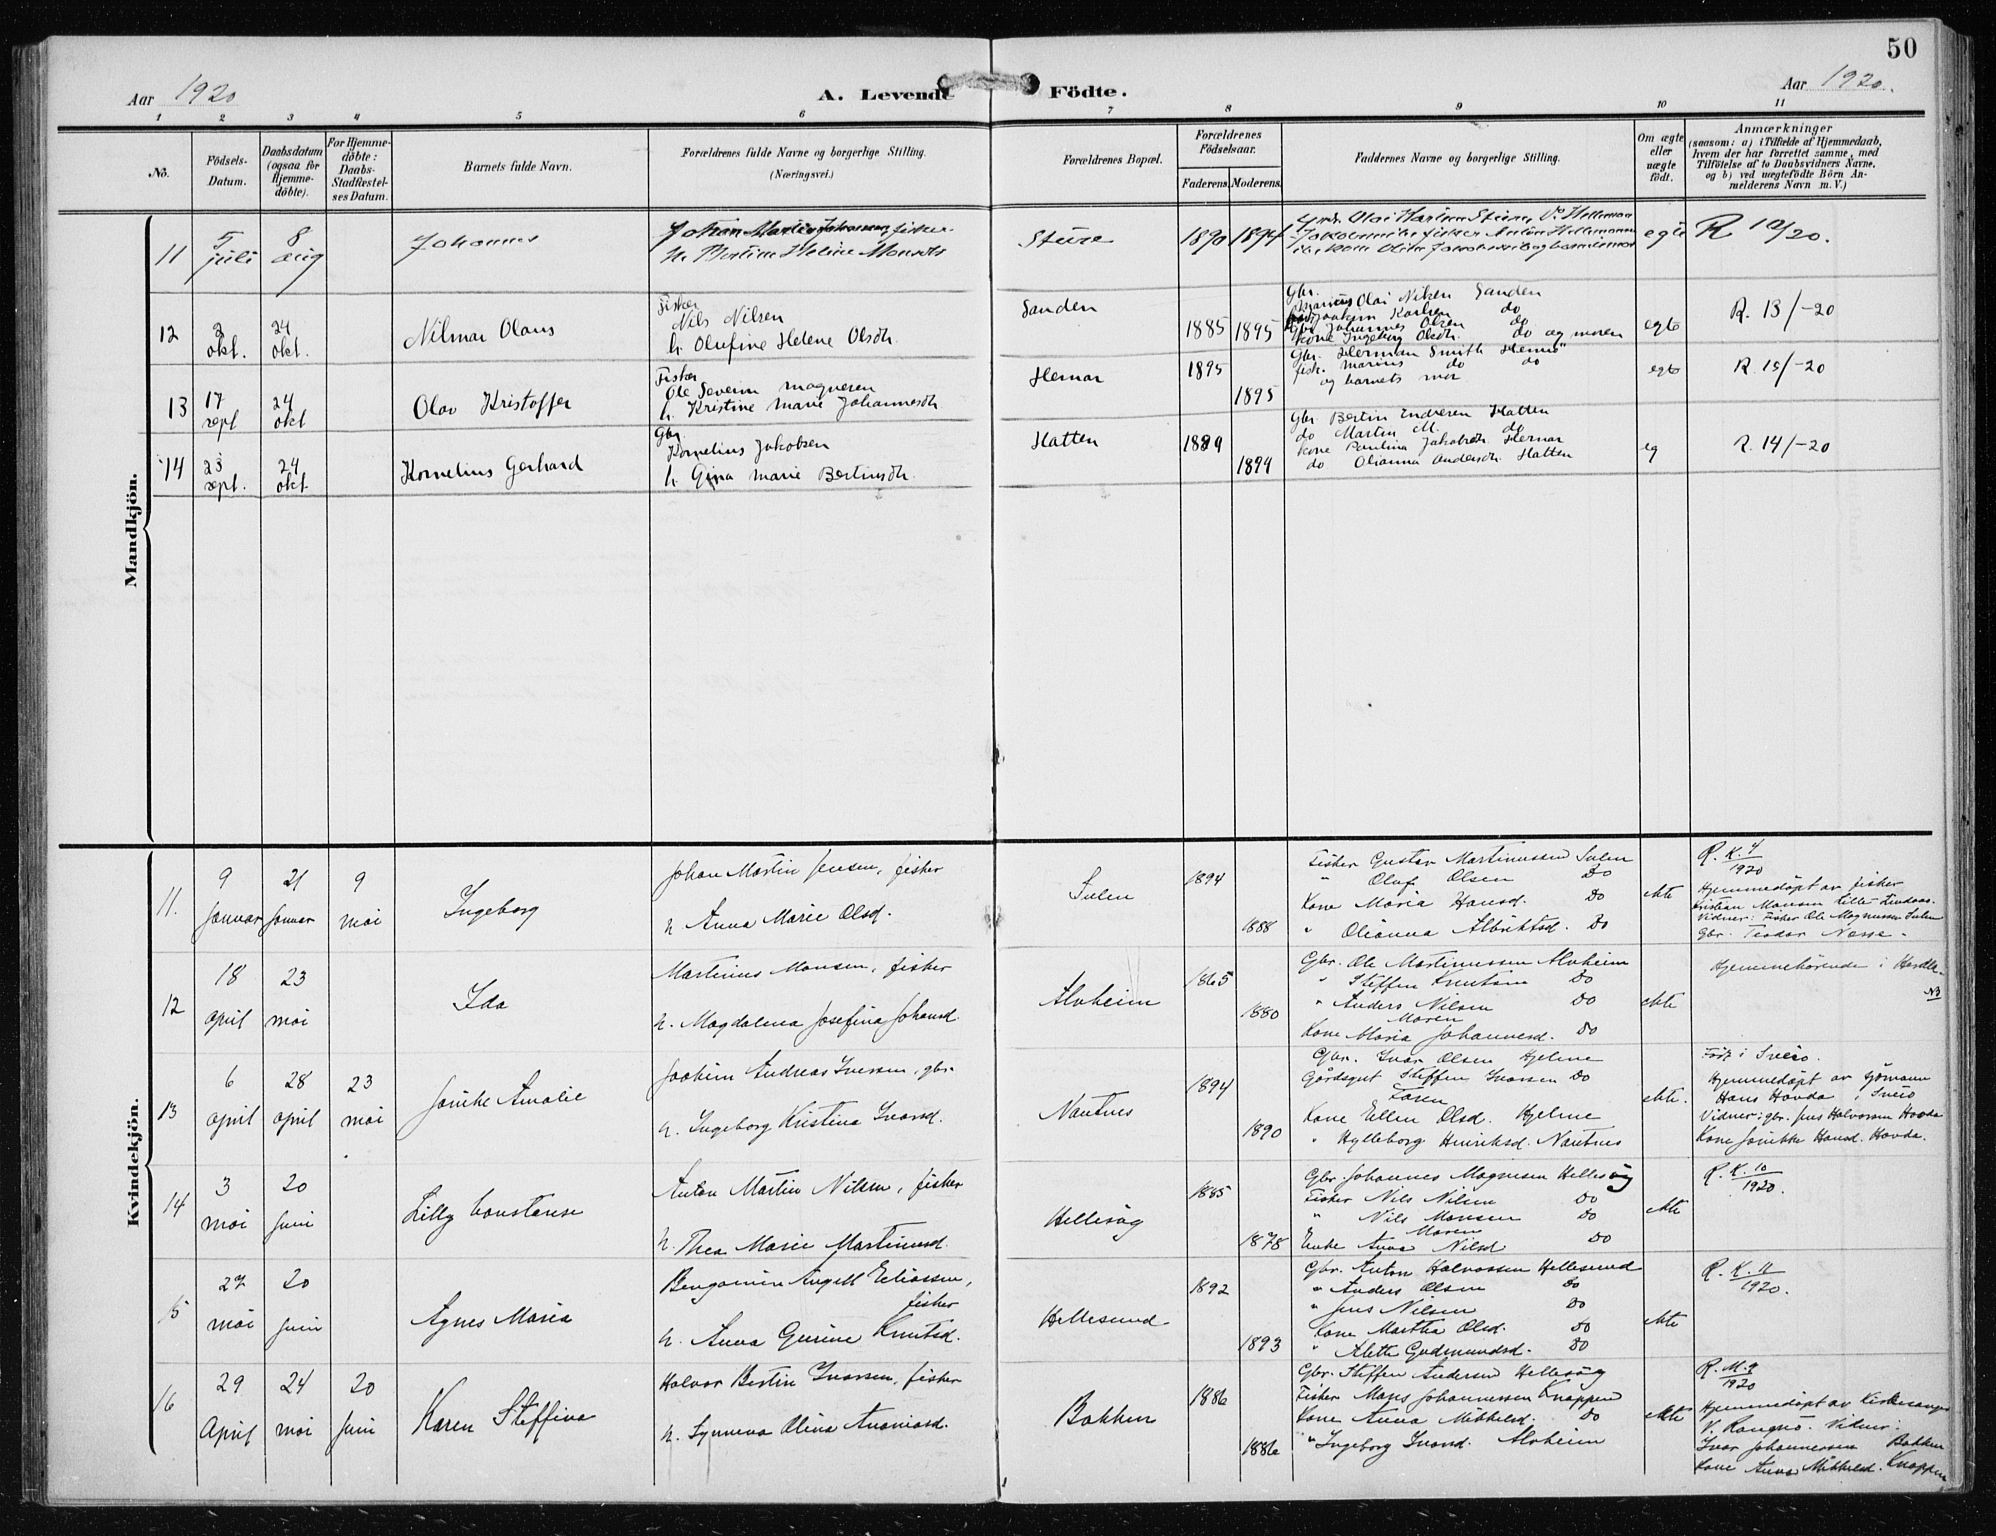 50
Aar 1920
A. Levende Födte.
Aar 1920.
1 2 3 4 5 6 7 8 9 10 11
No.
Födsels-Datum.
Daabsdatum (ogsaa for Hjemme-döbte).
For Hjemme-döbte: Daabs-Stadfæstel-ses Datum.
Barnets fulde Navn.
Forældrenes fulde Navne og borgerlige Stilling.
(Næringsvei.)
Forældrenes Bopæl.
Forældrenes Födselsaar.
Faderens. Moderens.
Faddernes Navne og borgerlige Stilling.
Om ægte eller uægte födt.
Anmærkninger
(saasom: a) i Tilfælde af Hjemmedaab,
hvem der har forrettet samme, med
Tilföielse af to Daabsvidners Navne,
og b) ved uægtefödte Börn An-
melderens Navn m. V.)
Mandkjön.
11
5 juli
8 aug
Johannes
Johan Martin Johannessen fisker
h. Bertine Helene Monsdt
Sture
1890 1894
egte
R 12/20.
12
2 okt.
24 okt.
Nilmar Olaus
Fisker
Nils Nilsen
h. Olufine Helene Olsdtr.
Sanden
1885 1895
Gbr.
Marius Olai Nilsen Sanden
Joakim Karlsen do
Gbr Johannes Olsen do
Kone Ingeborg Olsdtr. do og moren
egte
R. 13/-20
13
17 sept
24 okt
Olav Kristoffer
Fisker
Ole Severin Magnesen
h. Kristine Marie Johannesdtr
Hernar
1895
1895
Gbr. Herman Smith Hernar
fisk. Marius do do
og barnets mor
egte
R. 15/-20
14
23 sept.
24 okt.
Kornelius Gerhard
Gbr.
Kornelius Jakobsen
h. Gina Marie Bertinsdtr.
Hatten
1889
1894
Gbr Bertin Endresen Hatten
do Martin M. do
Kone Paulina Jakobsdtr. Hernar
do Olianna Andersdtr. Hatten
eg
R. 14/-20
Kvindekjön.
11.
9 Januar
21 Januar
9 mai
Ingeborg
Johan Martin Jensen, fisker
h. Anna Marie Olsd.
Sulen
1894
1888
Fisker Gustav Martinussen Sulen
" Oluf Olsen Do
Kone Maria Hansd. Do
" Olianna Albriktsd. Do
ekte
R. K. 4/1920
Hjemmedöpt av fisker
Kristian Monsen Lille-Lindaas.
Vidner: Fisker Ole Magnussen Sulen
Gbr. Teodor Næsse.
12
18 april
23 mai
Ida
Martinus Monsen, fisker
h. Magdalena Josefina Johansd.
Alvheim
1865
1880
Gbr. Ole Martinussen Alvheim
" Steffen Knutsen Do
" Anders Nilsen Do
Moren
Kone Maria Johannesd. Do
ekte
Hjemmehörende i Herdla.
NB
13
6 april
28 april
23 mai
Jonike Amalie
Joakim Andreas Iversen, gbr.
h. Ingeborg Kristina Ivarsd.
Nautnes
1894
1890
Gbr. Ivar Olsen Hjelme
Gårdsgut Steffen Ivarsen Do
Faren
Kone Ellen Olsd. Hjelme
" Hylleborg Henriksd. Nautnes
ekte.
Född i Sveio.
Hjemmedöpt av sjömann
Hans Hovda, i Sveio
Vidner: gbr. Jens Halvorsen Hovda
Kone Jonikke Hansd. Hovda.
14
3 mai
20 Juni
Lilly Constanse
Anton Martin Nilsen, fisker
h. Thea Marie Martinusd.
Hellesöy
1885
1878
Gbr. Johannes Magnesen Hellesöy
Fisker Nils Nilsen Do
" Nils Monsen Do
Moren
Enke Anna Nilsd Do
ekte
R. K. 10/1920.
15
27 mai
20 Juni
Agnes Maria
Benjamin Angell Eliassen,
fisker
h. Anna Gurine Knutsd.
Hellesund
1892
1893
Gbr. Anton Halvorsen Hellesund
" Anders Olsen Do
" Jens Nilsen Do
Kone Martha Olsd. Do
" Alette Gudmundsd. Do
ekte
R. K. 11/1920.
16
29 April
24 mai
20 Juni
Karen Steffina
Halvor Bertin Ivarsen, fisker
h. Synneva Olina Ananiasd.
Bakken
1886
1886
Gbr. Steffen Andersen Hellesöy
Fisker Mons Johannessen Knappen
Kone Anna Mikkelsd. Do
" Ingeborg Ivarsd. Alvheim
ekte
R. M. 9/1920
Hjemmedöpt av Kirkesanger
V. Rongnö. Vidner:
Ivar Johannessen Bakken
Kone Anna Mikkelsd. Knappen